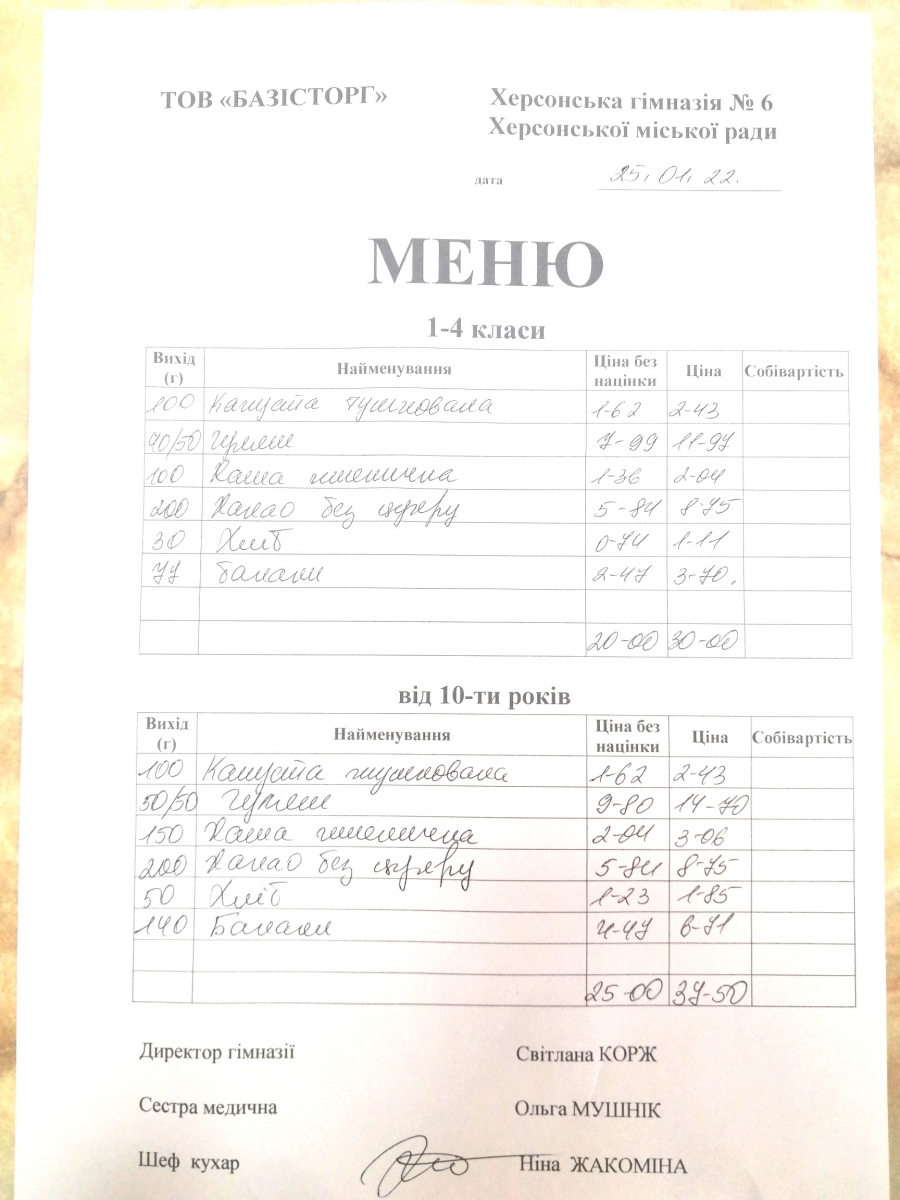 ТОВ «БАЗІСТОРГ»
Херсонська гімназія № 6
Херсонської міської ради
дата 25.01.22.
МЕНЮ
1-4 класи
Вихід (г) Найменування Ціна без націнки Ціна Собівартість
100 Капуста тушкована 1-62 2-43
70/50 гуляш 7-99 11-97
100 Каша пшенична 1-36 2-04
200 Какао без цукру 5-84 8-75
30 Хліб 0-74 1-11
77 банани 2-47 3-70.
20-00 30-00
від 10-ти років
Вихід (г) Найменування Ціна без націнки Ціна Собівартість
100 Капуста тушкована 1-62 2-43
50/50 гуляш 9-80 14-70
150 Каша пшенична 2-04 3-06
200 Какао без цукру 5-84 8-75
50 Хліб 1-23 1-85
140 Банани 4-47 6-71
25-00 37-50
Директор гімназії Світлана КОРЖ
Сестра медична Ольга МУШНІК
Шеф кухар Ніна ЖАКОМІНА